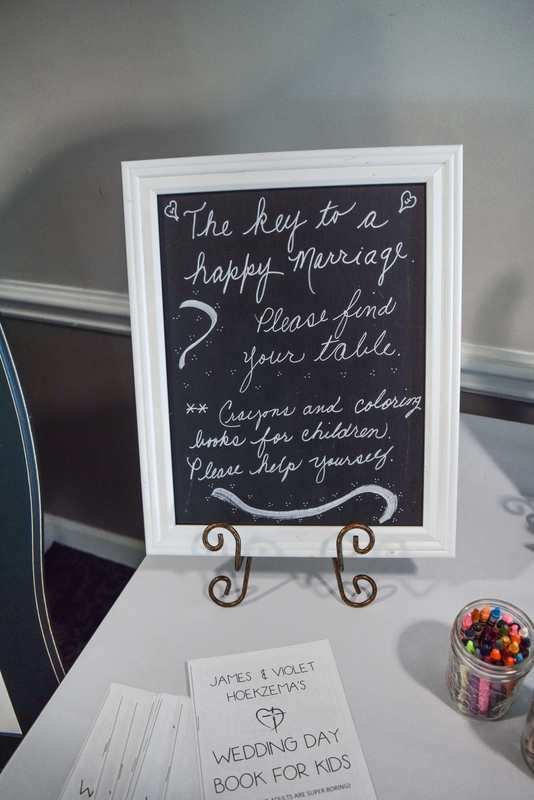 The key to a
happy Marriage.
Please find
your table.
** Crayons and coloring
books for children.
Please help yourself.
JAMES & VIOLET
HOEKZEMA'S
WEDDING DAY
BOOK FOR KIDS
ADULTS ARE SUPER BORING)